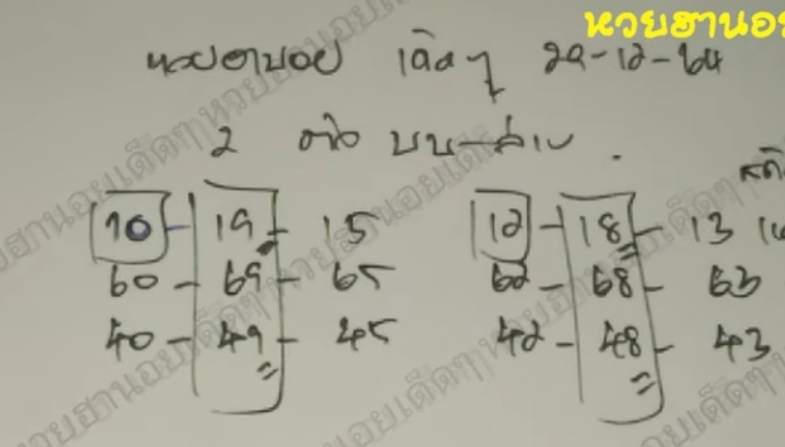 หวยฮานอย
หวยฮานอย เด็ดๆ 29-12-64
2 ตัว บน-ล่าง
10 - 19 - 15 12 - 18 - 13
60 - 69 - 65 62 - 68 - 63
40 - 49 - 45 42 - 48 - 43
หวยฮานอยเด็ดๆ